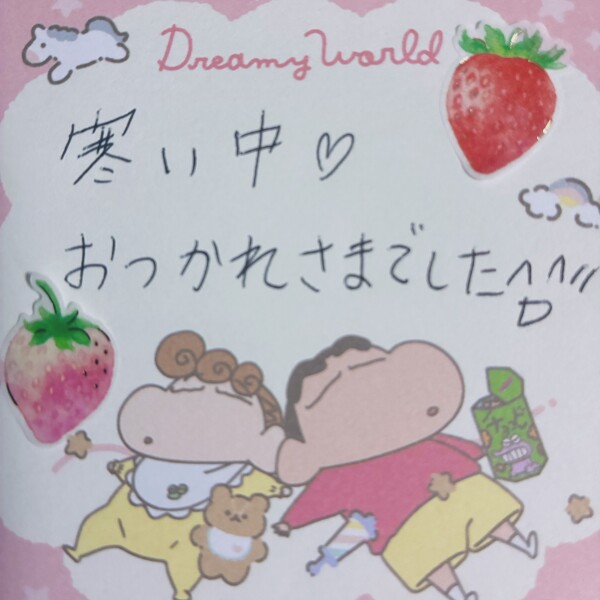 Dreamy World
寒い中♡
おつかれさまでした^D^"
チョコビ